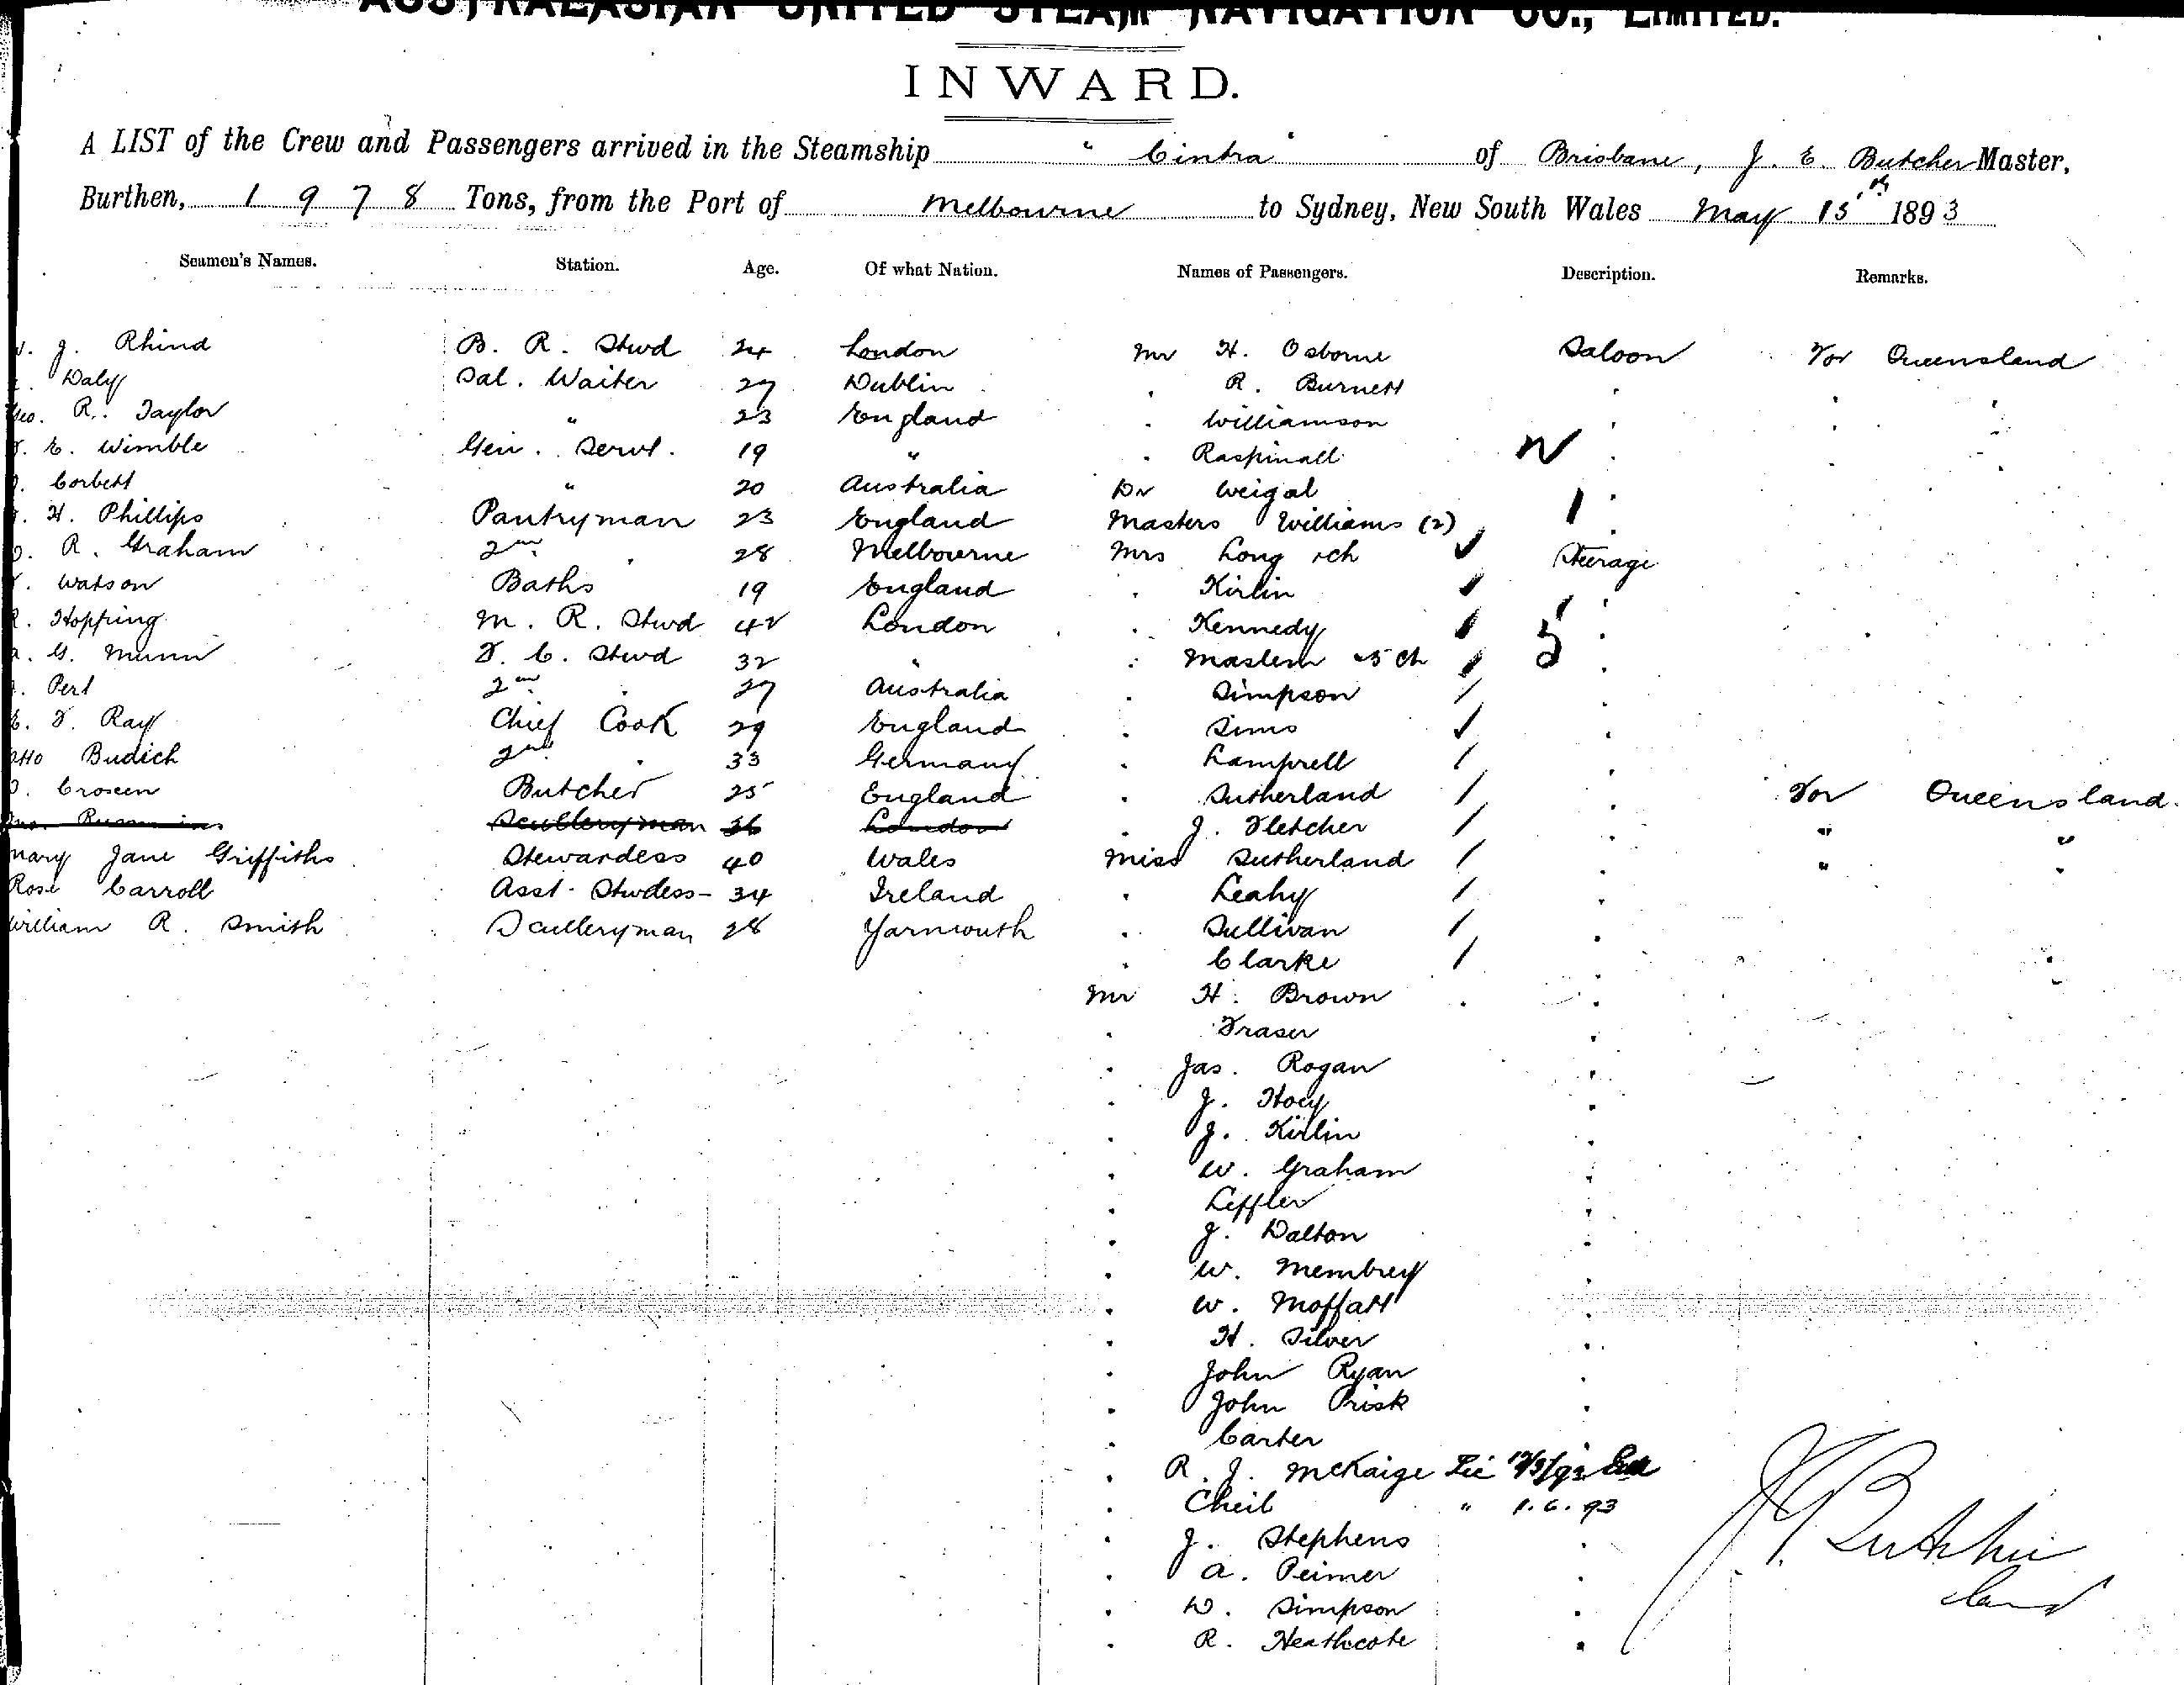 AUSTRALASIAN UNITED STEAM NAVIGATION CO., LIMITED.
INWARD.
A LIST of the Crew and Passengers arrived in the Steamship "Cintra" of Brisbane, J. E. Butcher Master,
Burthen, 1 9 7 8 Tons, from the Port of Melbourne to Sydney, New South Wales May 15th 1893
Seamen's Names. Station. Age. Of what Nation. Names of Passengers. Description. Remarks.
J. Rhind B. R. Stwd 24 London Mr H. Osborne Saloon For Queensland
Daly Sal. Waiter 27 Dublin . R. Burnett . . .
Geo. R. Taylor " 23 England . Williamson . . .
E. Wimble Gen. Servt. 19 " . Raspinall .
Corbett " 20 Australia Dr Weigal .
H. Phillips Pantryman 23 England Masters Williams (2) 1 .
R. Graham 2nd . 28 Melbourne Mrs Long Steerage
Watson Baths 19 England . Kirlin .
Hopping M. R. Stwd 42 London . Kennedy 5 .
G. Munn F. C. Stwd 32 " . Maslem 5 ch .
Pert 2nd . 27 Australia . Simpson .
F. Ray Chief Cook 29 England . Sims .
Otto Budich 2nd . 33 Germany . Lamprell .
Croseen Butcher 25 England . Sutherland . For Queensland.
Sculleryman 36 London . J. Fletcher . " "
Mary Jane Griffiths Stewardess 40 Wales Miss Sutherland . " "
Rose Carroll Asst. Stwdess - 34 Ireland . Leahy .
William R. Smith Sculleryman 28 Yarmouth . Sullivan .
. Clarke .
Mr H. Brown .
. Fraser .
. Jas. Rogan .
. J. Hoey .
. J. Kirlin .
. W. Graham .
. Leffler .
. J. Dalton .
. W. Membrey .
. W. Moffatt .
. H. Silver .
. John Ryan .
. John Prisk .
. Carter .
. R. J. McKaige
. Cheil " 1.6.93
. J. Stephens .
. A. Peimer .
. D. Simpson .
. R. Heathcote .